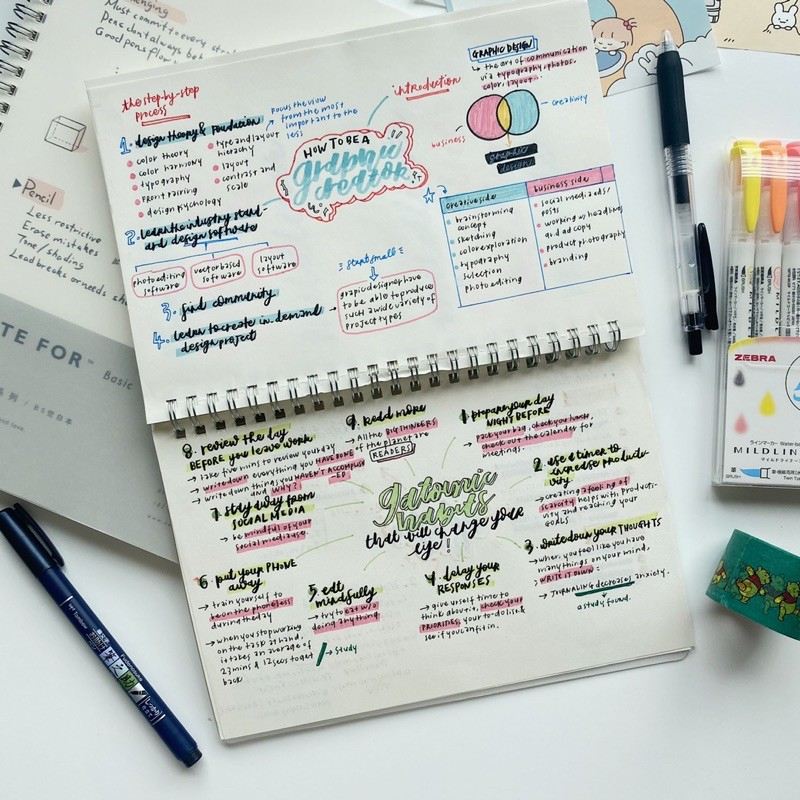 Must commit to every
Pens don't always
Good pens flow
Pencil
Less restrictive
Erase mistakes
Tone/shading
Lead breaks or needs
TE FOR™ Basic
the step-by-step
process
1. design theory & foundation
color theory
color harmony
typography
font pairing
design psychology
type and layout
hierarchy
layout
contrast and
scale
focus the view
from the most
important to the
less
2. learn the industry stand-
ard design software
photo editing
software
vector based
software
layout
software
3. find community
4. learn to create in-demand
design project
HOW TO BE A
graphic
creator
introduction
start small
grapic designer have
to be able to produce
such a wide variety of
project types
GRAPHIC DESIGN
→ the art of communication
via typography, photos,
color, layout...
creativity
business
graphic
design
creative side
brainstorming
concept
sketching
color exploration
typography
selection
photo editing
business side
social media ads/
posts
working w/ headlines
and ad copy
product photography
branding
9 atomic
habits
that will change your
life!
1. prepare your day
NIGHT BEFORE
→ pack your bag, check your
check out the calendar for
meetings.
2. use a timer to
increase producti-
vity
→ creating a feeling of
scarcity helps with producti-
vity and reaching your
goals
3. write down your THOUGHTS
→ when you feel like you have
many things on your mind,
WRITE IT DOWN!
→ JOURNALING decreases anxiety.
a study found.
4. delay your
RESPONSES
→ give urself time to
think above it, check your
PRIORITIES, your to do list &
see if you can fit in.
5. eat
mindfully
→ try to eat w/o
doing anything
→ study
6. put your PHONE
away
→ train yourself to
be on the phone less
during the day
→ when you stop working
on the task at hand,
it takes an average of
23 mins & 12 secs to get
back
7. stay away from
SOCIAL MEDIA
→ be mindful of your
social media use.
8. review the day
BEFORE you leave work
→ take five mins to review your day
→ write down everything you HAVE DONE
→ write down things you HAVEN'T ACCOMPLISH
ED and WHY?
9. read more
→ All the BIG THINKERS
of the planet are
READERS
ZEBRA
MILDLIN